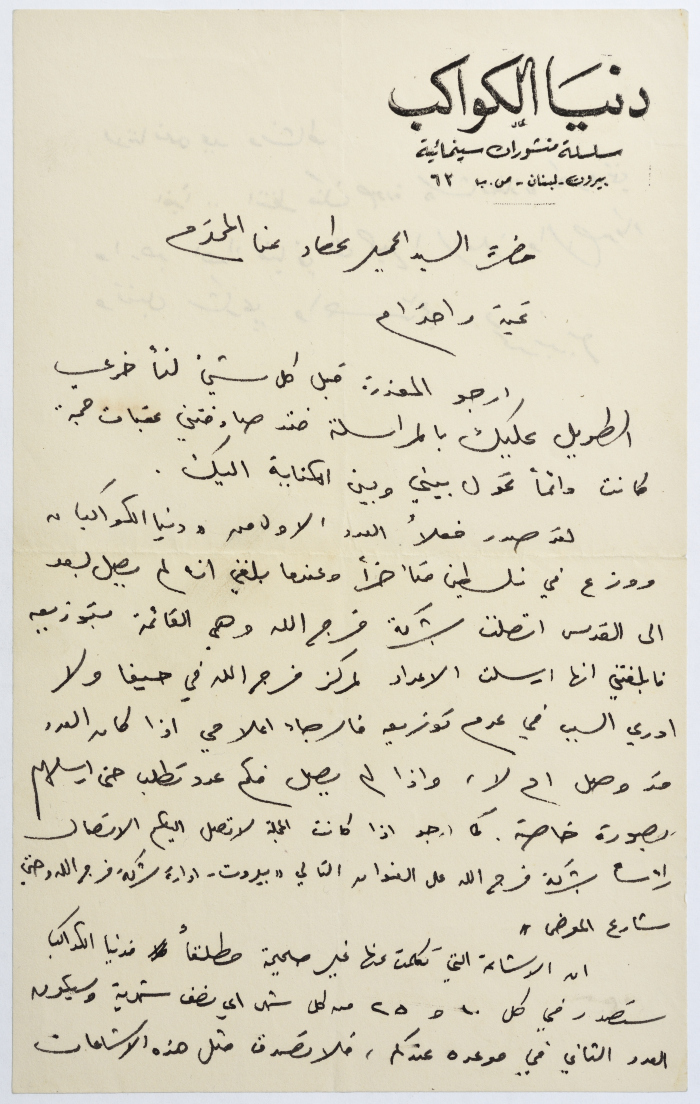 دنيا الكواكب
سلسلة منشورات سينمائية
بيروت - لبنان - ص. ب ٦٢
حضرة السيد اميل عطاد حنا المحترم
تحية واحترام
ارجو المعذرة قبل كل شيء لتأخري
الطويل عليك بالمراسلة فقد صادفتني عقبات جمة
كانت دائماً تحول بيني وبين الكتابة اليك .
لقد صدر فعلاً العدد الاول من « دنيا الكواكب »
ووزع في فلسطين متأخراً وعندما بلغني انه لم يصل بعد
الى القدس اتصلت بشركة فرج الله وهي القائمة بتوزيعه
فابلغتني انها ارسلت الاعداد لمركز فرج الله في حيفا ولا
ادري السبب في عدم توزيعه فالرجاء اعلامي اذا كان العدد
قد وصل ام لا ، واذا لم يصل فكم عدد تطلب حتى ارسلهم
بصورة خاصة . كما ارجو اذا كانت المجلة لا تصل اليكم الاتصال
رأساً بشركة فرج الله على العنوان التالي « بيروت - ادارة شركة فرج الله وحتي
شارع المعرض »
ان الاشاعة التي تكلمت عنها غير صحيحة مطلقاً فدنيا الكواكب
ستصدر في كل ١٠ و ٢٥ من كل شهر اي نصف شهرية وسيكون
العدد الثاني في موعده عندكم ، فلا تصدق مثل هذه الاشاعات